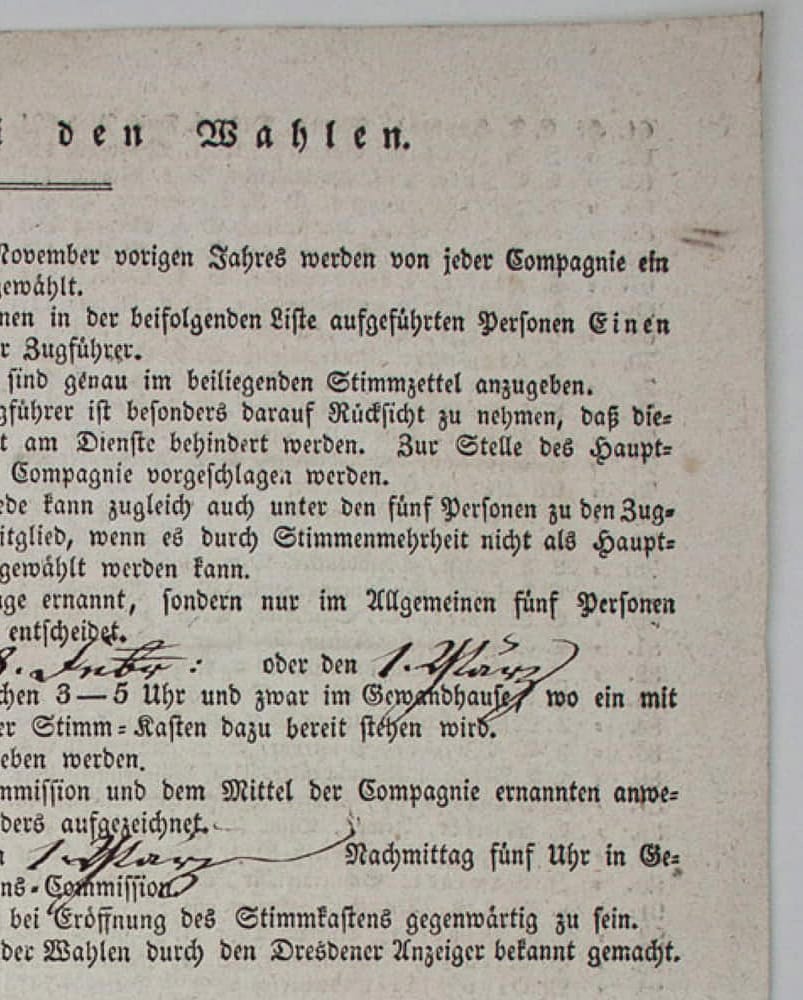 i den Wahlen.
November vorigen Jahres werden von jeder Compagnie ein
gewählt.
nen in der beifolgenden Liste aufgeführten Personen Einen
r Zugführer.
sind genau im beiliegenden Stimmzettel anzugeben.
gführer ist besonders darauf Rücksicht zu nehmen, daß die=
t am Dienste behindert werden. Zur Stelle des Haupt=
Compagnie vorgeschlagen werden.
ede kann zugleich auch unter den fünf Personen zu den Zug=
itglied, wenn es durch Stimmenmehrheit nicht als Haupt=
gewählt werden kann.
ge ernannt, sondern nur im Allgemeinen fünf Personen
entscheidet.
8. Febr: oder den 1. März
chen 3—5 Uhr und zwar im Gewandhause, wo ein mit
er Stimm=Kasten dazu bereit stehen wird.
eben werden.
mmission und dem Mittel der Compagnie ernannten anwe=
ders aufgezeichnet.
1. März Nachmittag fünf Uhr in Ge=
ns=Commission
bei Eröffnung des Stimmkastens gegenwärtig zu sein.
der Wahlen durch den Dresdener Anzeiger bekannt gemacht.